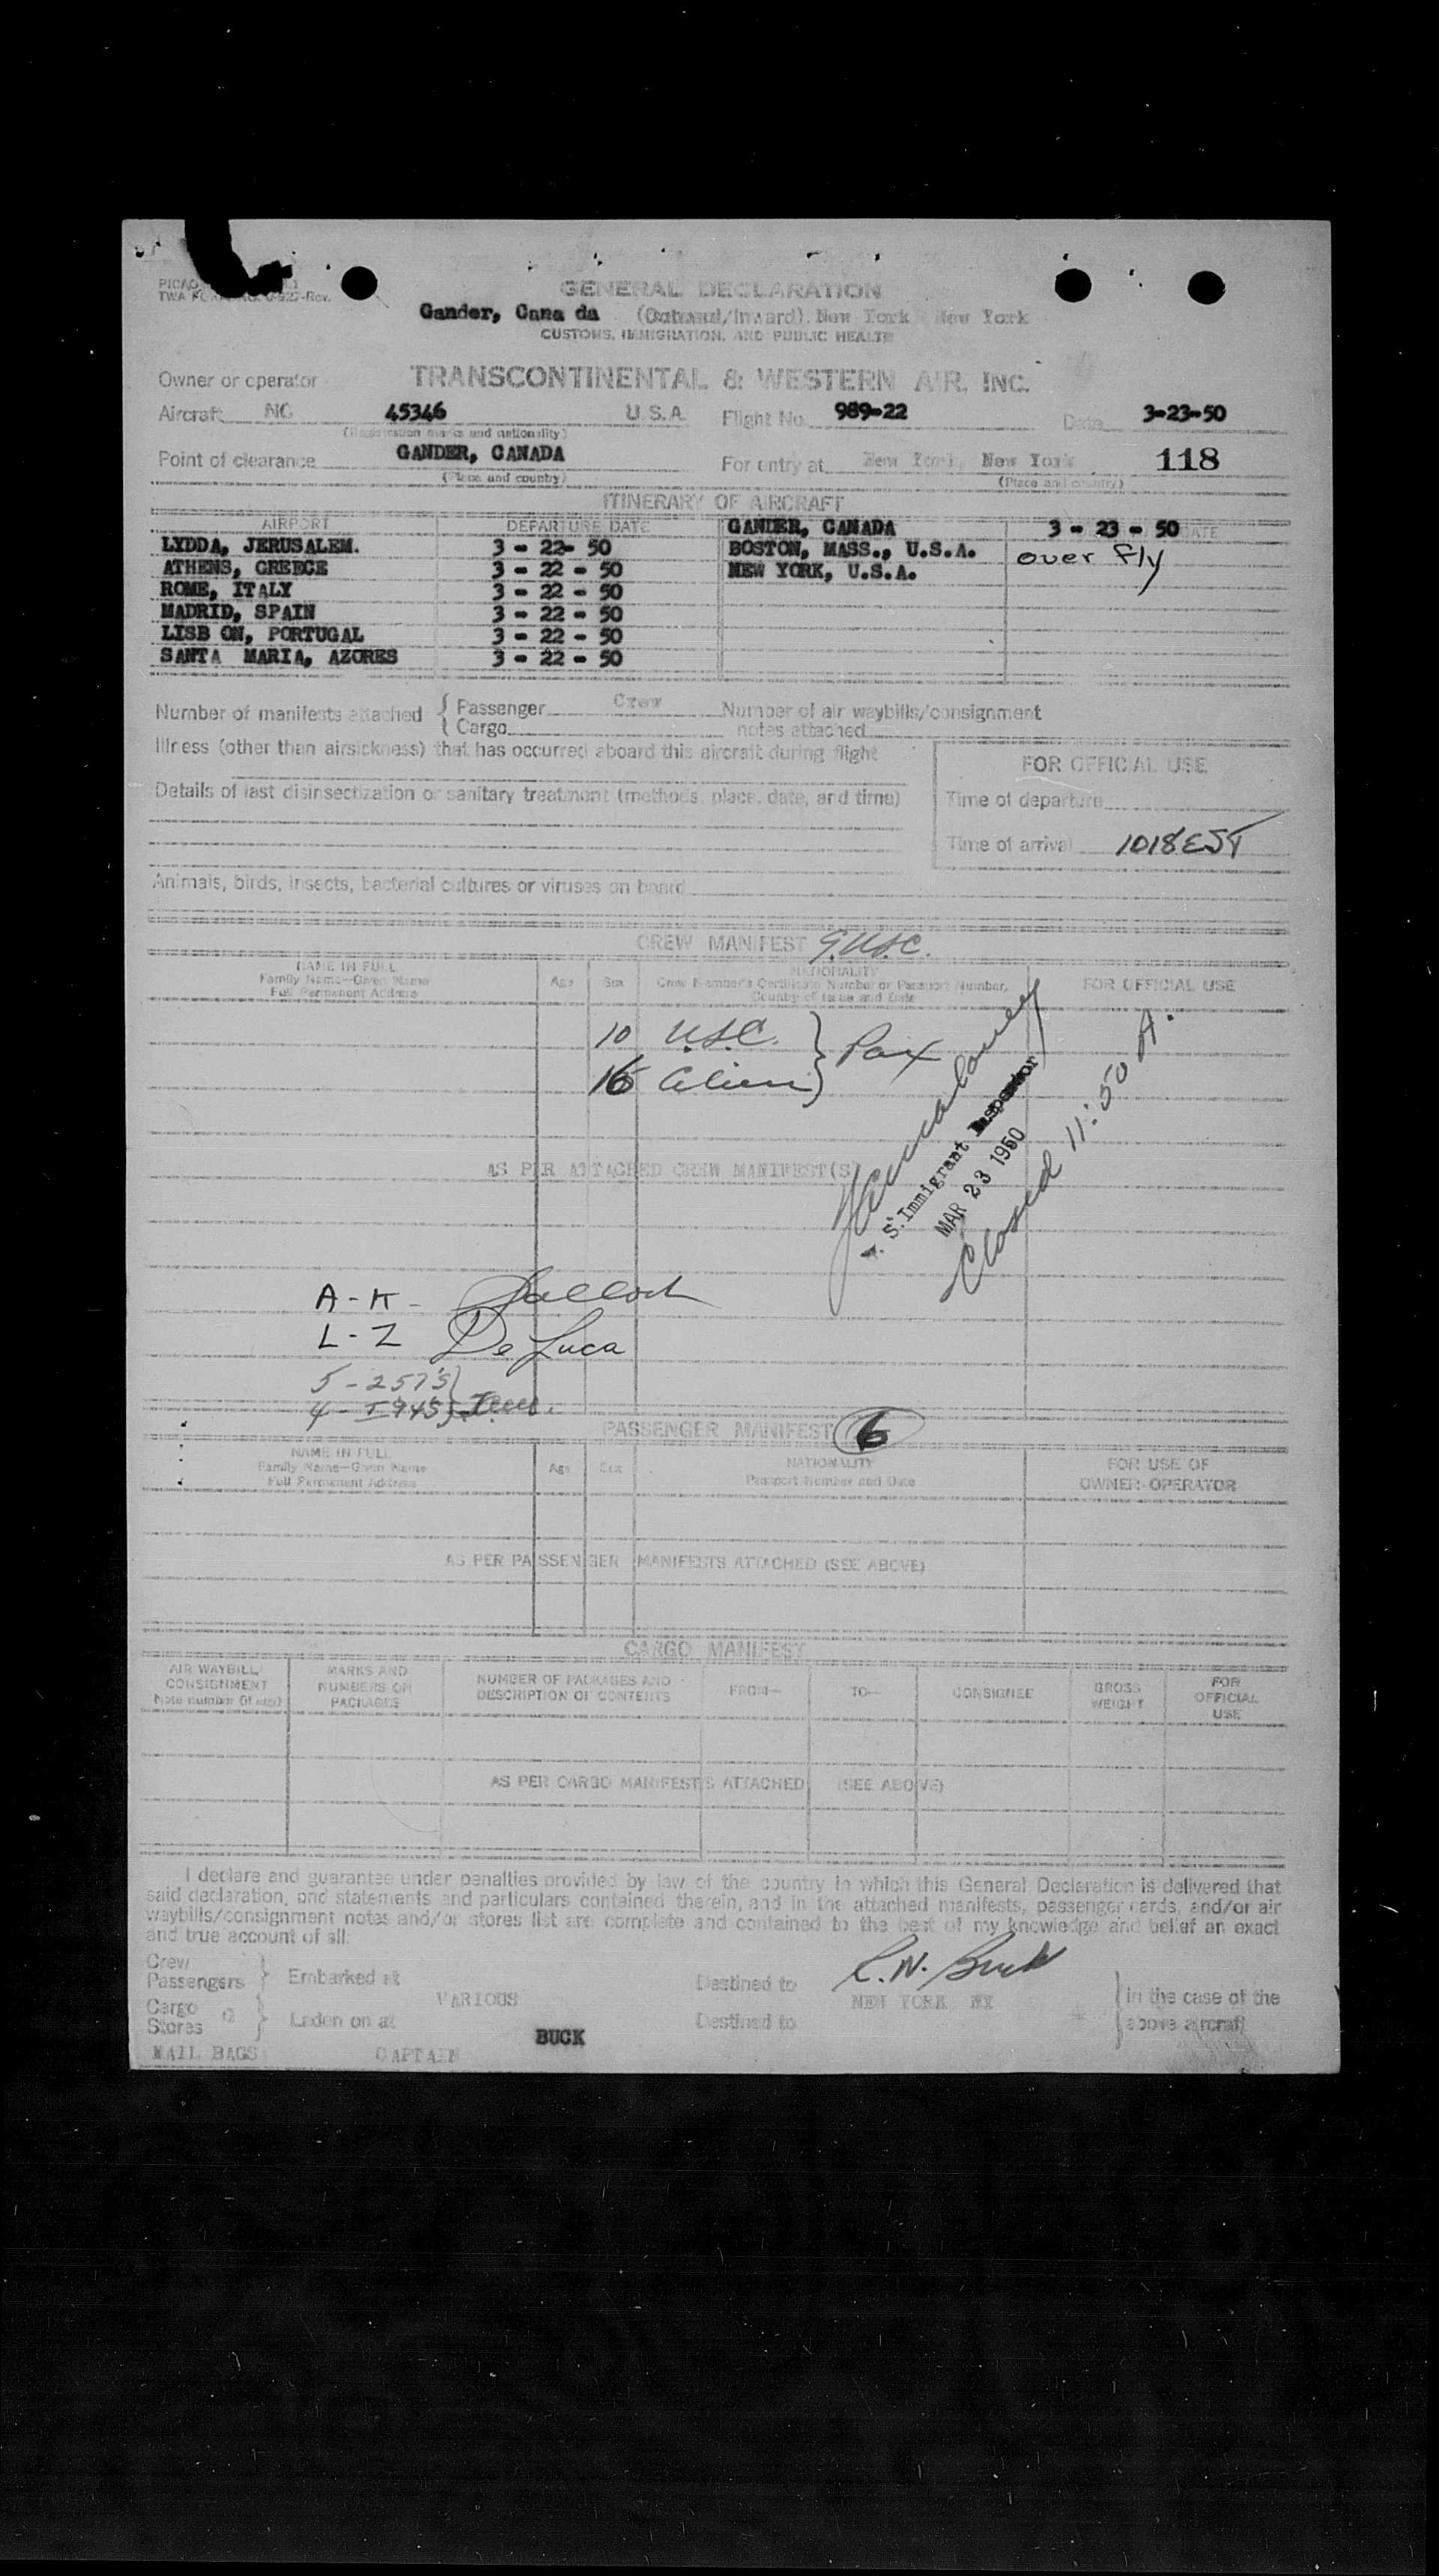 GENERAL DECLARATION
Gander, Cana da (Outward/Inward) New York New York
CUSTOMS, IMMIGRATION, AND PUBLIC HEALTH
Owner or operator TRANSCONTINENTAL & WESTERN AIR, INC.
Aircraft NC 45346 U.S.A. Flight No. 989-22 Date 3-23-50
(Registration marks and nationality)
Point of clearance GANDER, CANADA For entry at New York, New York 118
(Place and country) (Place and country)
ITINERARY OF AIRCRAFT
AIRPORT DEPARTURE DATE GANDER, CANADA 3 - 23 - 50 DATE
LYDDA, JERUSALEM. 3 - 22- 50 BOSTON, MASS., U.S.A. over fly
ATHENS, GREECE 3 - 22 - 50 NEW YORK, U.S.A.
ROME, ITALY 3 - 22 - 50
MADRID, SPAIN 3 - 22 - 50
LISB ON, PORTUGAL 3 - 22 - 50
SANTA MARIA, AZORES 3 - 22 - 50
Number of manifests attached { Passenger Crew Number of air waybills/consignment
Cargo notes attached
Illness (other than airsickness) that has occurred aboard this aircraft during flight
FOR OFFICIAL USE
Details of last disinsectization or sanitary treatment (methods, place, date, and time)
Time of departure
Time of arrival 1018 EST
Animals, birds, insects, bacterial cultures or viruses on board
CREW MANIFEST 9 U.S.C.
NAME IN FULL NATIONALITY
Family Name—Given Name Age Sex Crew Member's Certificate Number or Passport Number, FOR OFFICIAL USE
Full Permanent Address Country of Issue and Date
10 U.S.C. } Pax
16 Alien }
S. Immigrant Inspector
MAR 23 1950
Closed 11:50 A.
AS PER ATTACHED CREW MANIFEST(S)
A-K-
L-Z De Luca
5 - 257's }
4 - I 94's }
PASSENGER MANIFEST 6
NAME IN FULL NATIONALITY FOR USE OF
Family Name—Given Name Age Sex Passport Number and Date OWNER-OPERATOR
Full Permanent Address
AS PER PASSENGER MANIFESTS ATTACHED (SEE ABOVE)
CARGO MANIFEST
AIR WAYBILL/ MARKS AND NUMBER OF PACKAGES AND FROM— TO— CONSIGNEE GROSS FOR
CONSIGNMENT NUMBERS ON DESCRIPTION OF CONTENTS WEIGHT OFFICIAL
Note number (if any) PACKAGES USE
AS PER CARGO MANIFESTS ATTACHED (SEE ABOVE)
I declare and guarantee under penalties provided by law of the country in which this General Declaration is delivered that
said declaration, and statements and particulars contained therein, and in the attached manifests, passenger cards, and/or air
waybills/consignment notes and/or stores list are complete and contained to the best of my knowledge and belief an exact
and true account of all:
Crew
Passengers } Embarked at Destined to R.N. Buck in the case of the
VARIOUS NEW YORK NY
Cargo
Stores } Laden on at Destined to above aircraft
BUCK
MAIL BAGS CAPTAIN